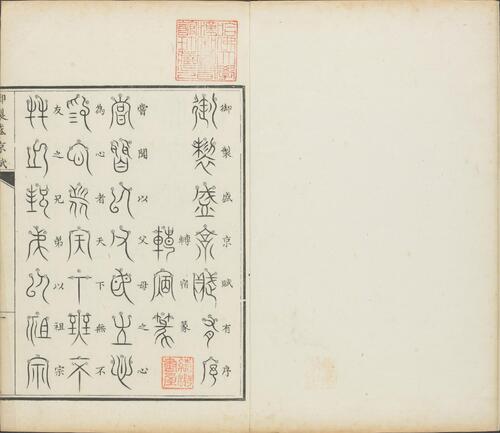 御製盛京賦有序
轉宿篆
嘗聞以父母之心
為心者天下無不
友之兄弟以祖宗
御製盛京賦